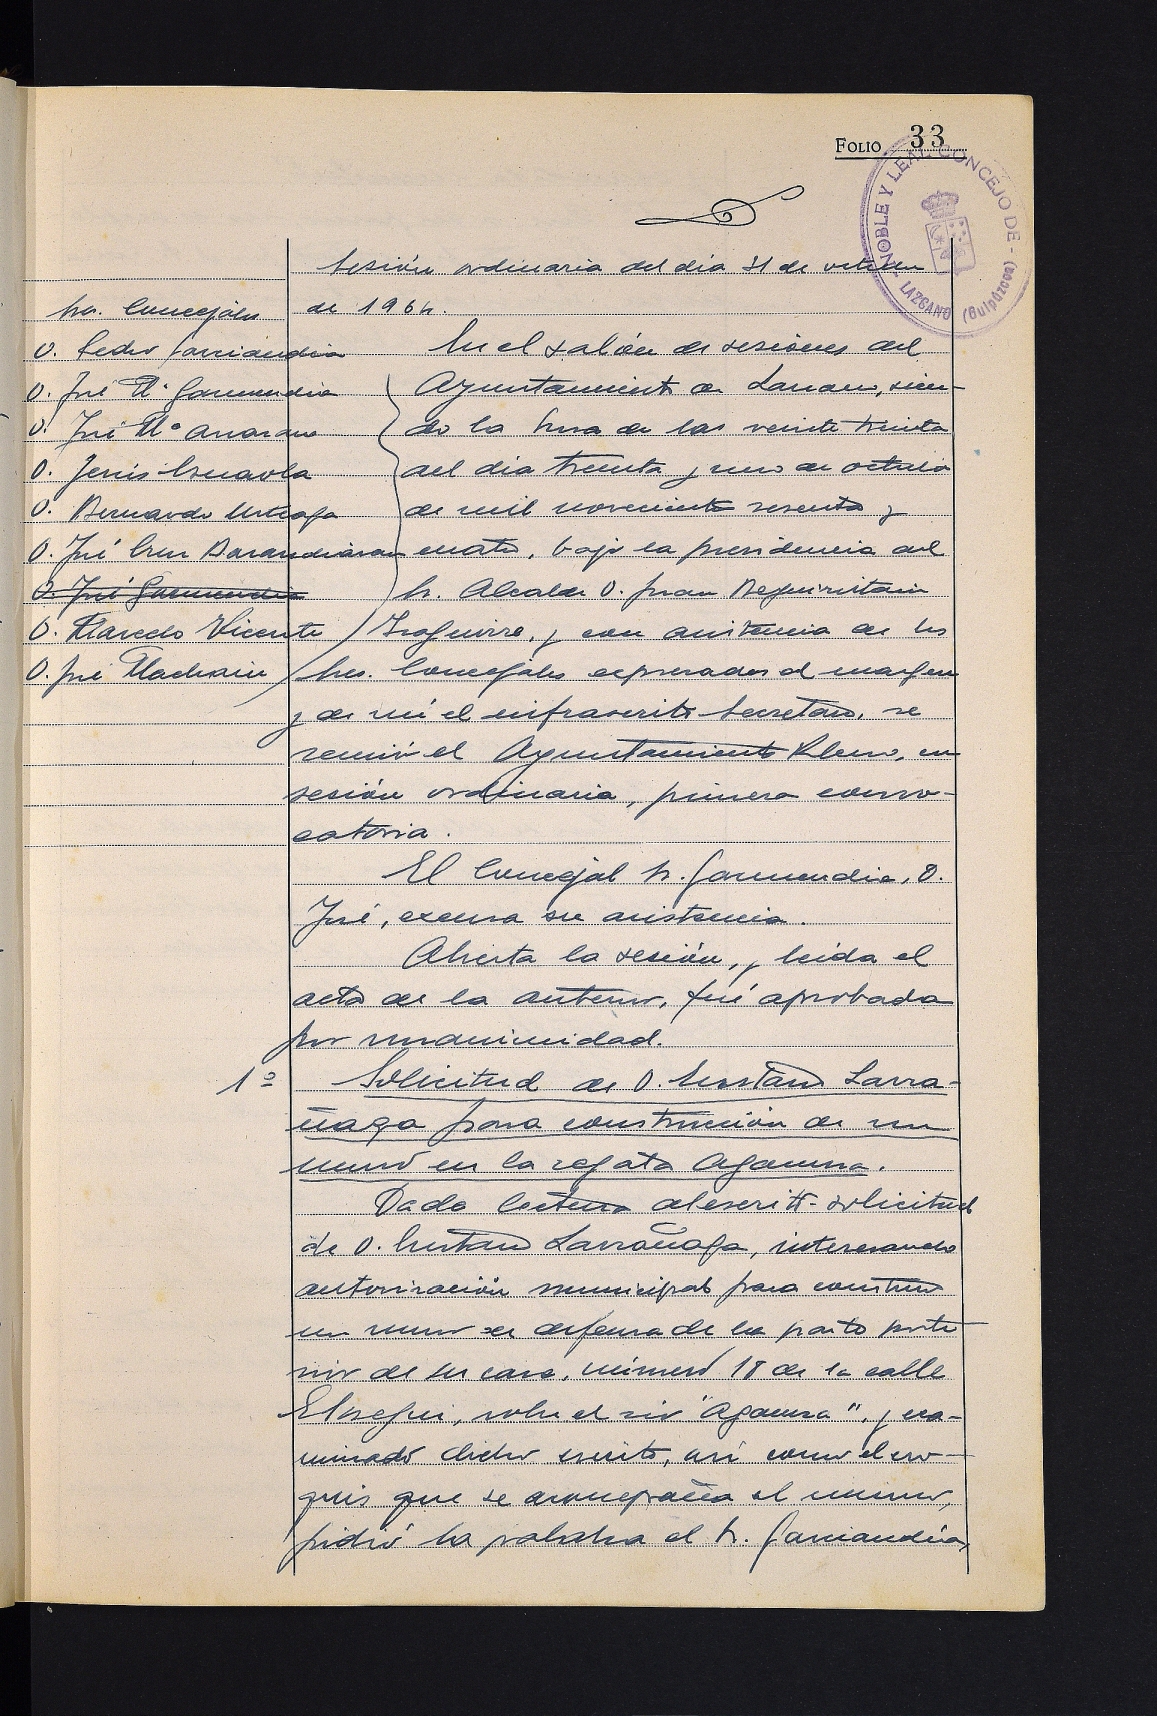 FOLIO 33
NOBLE Y LEAL CONCEJO DE - LAZCANO (Guipúzcoa)
Sesión ordinaria del día 31 de octubre
de 1964.
Sres. Concejales
D. Pedro Garciandia
D. José Mª Garmendia
D. José Mª
D. Jesús
D. Bernardo Urteaga
D. José Cruz Barandiaran
D. José Garmendia
D. Marcelo Vicente
D. José
En el salón de sesiones del
Ayuntamiento de Lazcano, sien-
do la hora de las veinte treinta
del día treinta y uno de octubre
de mil novecientos sesenta y
cuatro, bajo la presidencia del
Sr. Alcalde D. Juan Beguiristain
y con asistencia de los
Sres. Concejales expresados al margen
y de mí el infrascrito Secretario, se
reunió el Ayuntamiento Pleno, en
sesión ordinaria, primera convo-
catoria.
El Concejal Sr. Garmendia, D.
José, excusa su asistencia.
Abierta la sesión, y leída el
acta de la anterior, fué aprobada
por unanimidad.
1º Solicitud de D. Larra-
ñaga para construcción de un
muro en la regata Agaunza.
Dada lectura al escrito-solicitud
de D. Larrañaga, interesando
autorización municipal para construir
un muro de defensa de la parte poste
rior de su casa, número 18 de la calle
Elosegui, sobre el río "Agaunza", y exa-
minado dicho escrito, así como el cro-
quis que se acompaña al mismo,
pidió la palabra el Sr. Garciandia,